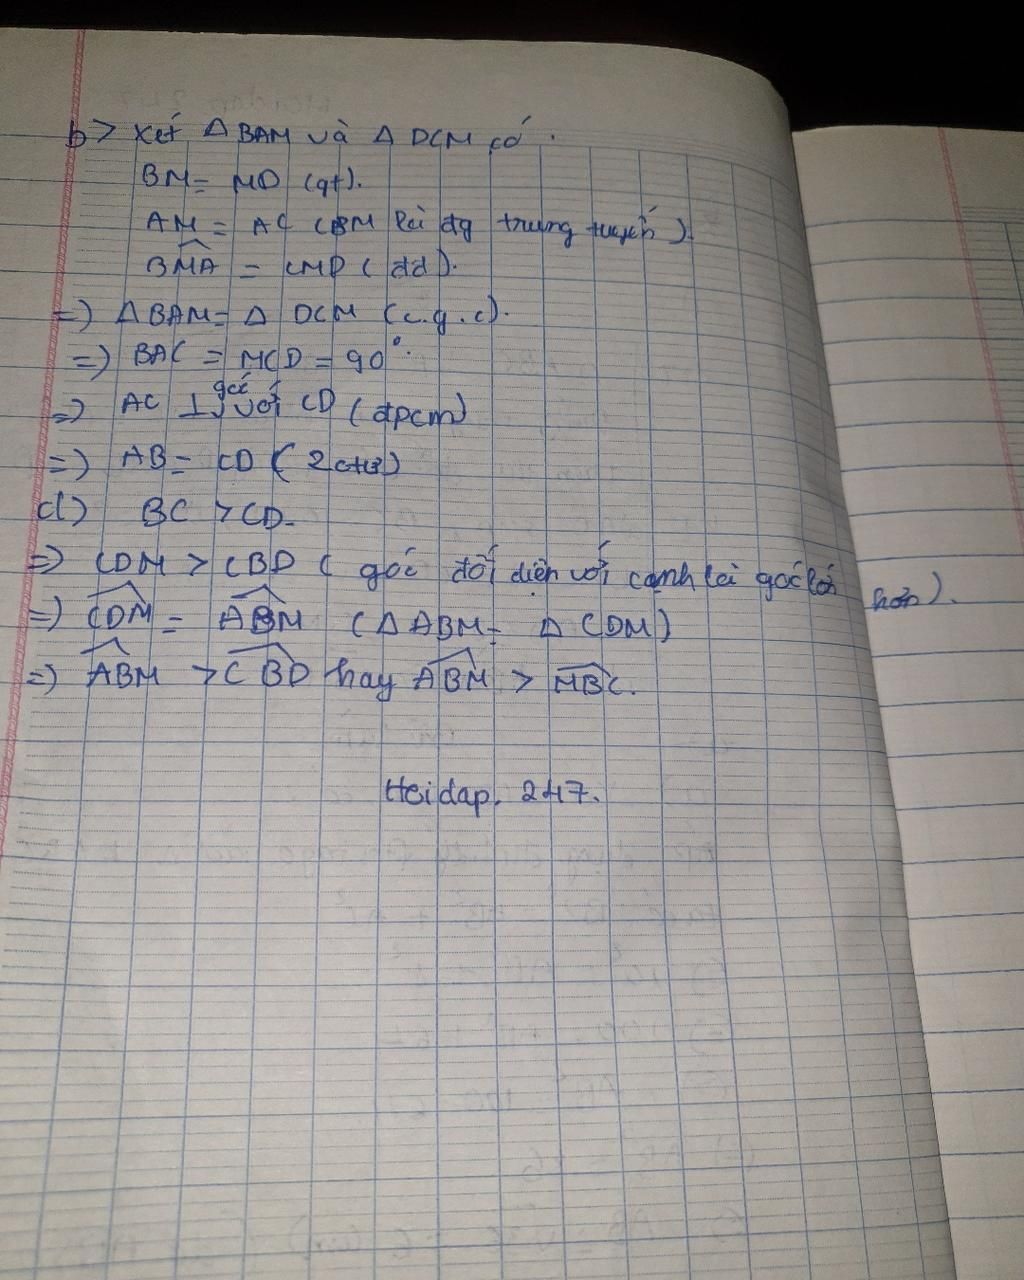 b> Xét △ BAM và △ DCM có.
BM = MD (gt).
AM = AC (BM là đg trung tuyến).
BMA = CMD (đđ).
=> △ BAM = △ DCM (c.g.c).
=> BAC = MCD = 90°.
=> AC ⊥ góc với CD (đpcm)
=> AB = CD (2ctứ)
d) BC > CD.
=> CDM > CBD (góc đối diện với cạnh là góc lớn hơn).
=> CDM = ABM (△ ABM = △ CDM)
=> ABM > CBD hay ABM > MBC.
Hoidap. 247.